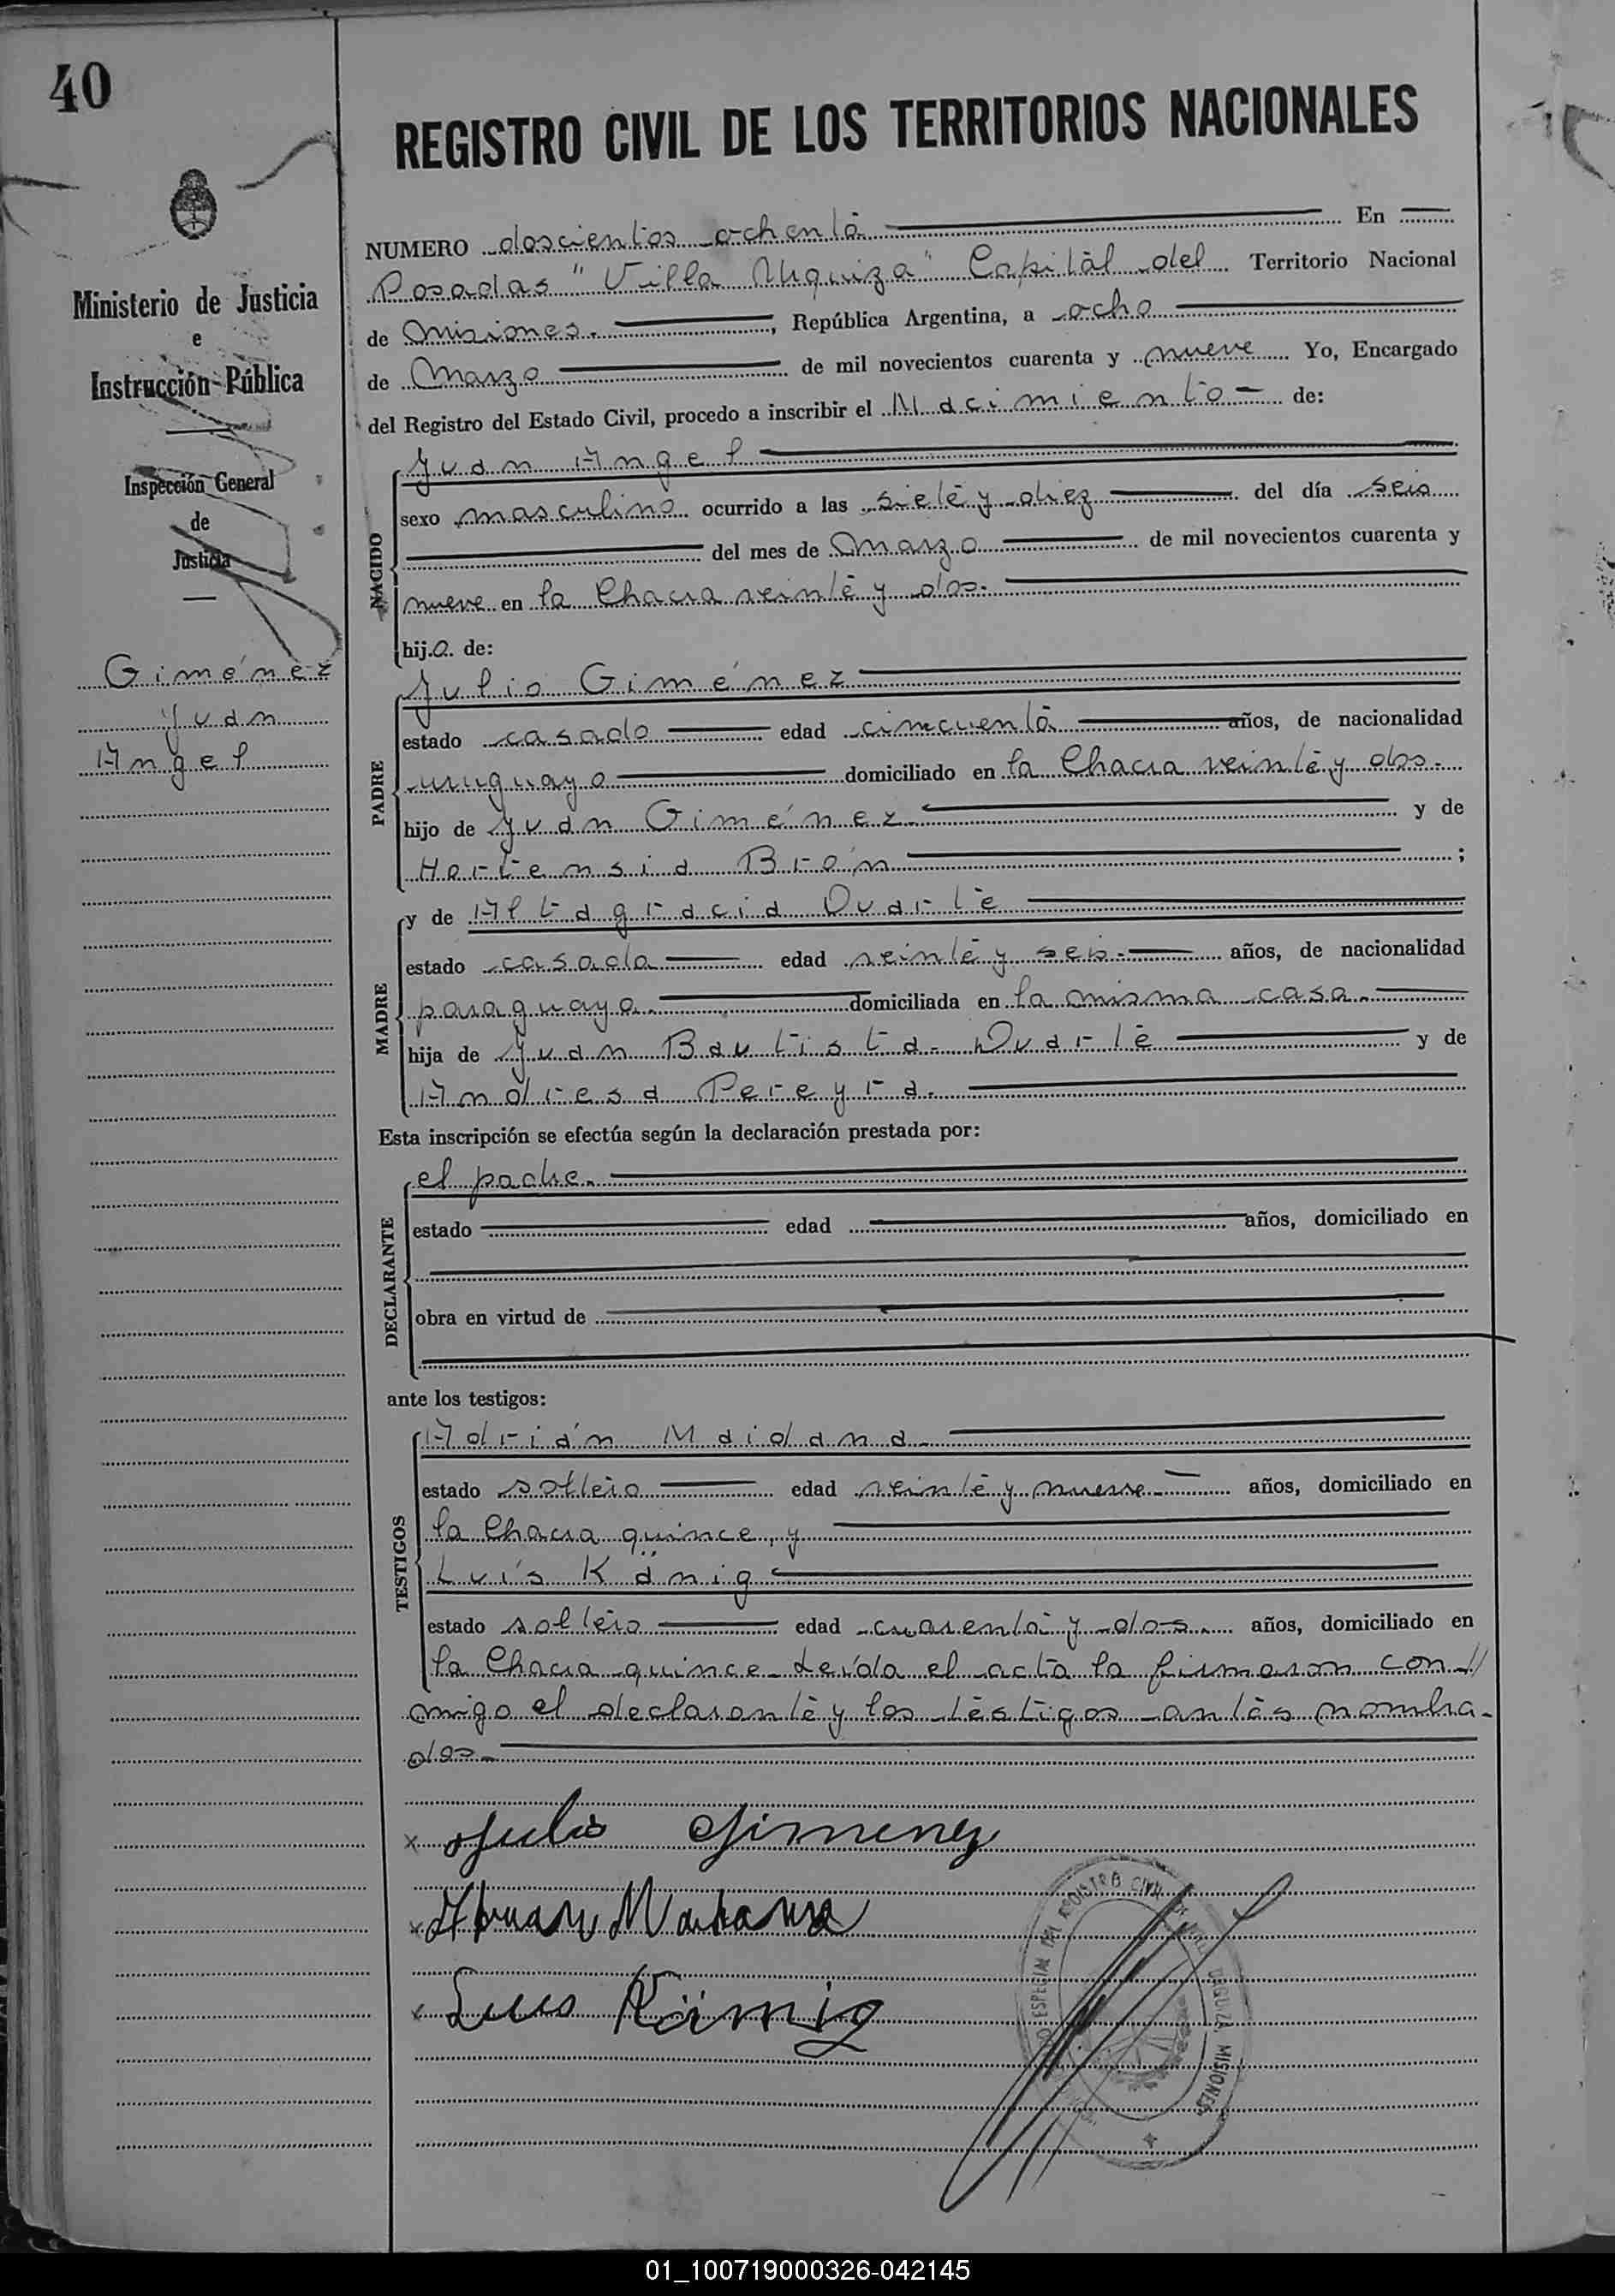 40
REGISTRO CIVIL DE LOS TERRITORIOS NACIONALES
Ministerio de Justicia
e
Instrucción Pública
Inspección General
de
Justicia
Giménez
Juan
Angel
NUMERO doscientos ochenta En
Posadas "Villa Urquiza" Capital del Territorio Nacional
de Misiones. , República Argentina, a ocho
de Marzo de mil novecientos cuarenta y nueve Yo, Encargado
del Registro del Estado Civil, procedo a inscribir el Nacimiento de:
NACIDO
Juan Angel
sexo masculino ocurrido a las siete y diez del día seis
del mes de Marzo de mil novecientos cuarenta y
nueve en la Chacra veinte y dos.
hijo de:
PADRE
Julio Giménez
estado casado edad cincuenta años, de nacionalidad
uruguayo domiciliado en la Chacra veinte y dos.
hijo de Juan Giménez. y de
Hortensia Brón ;
MADRE
y de Altagracia Duarte
estado casada edad veinte y seis. años, de nacionalidad
paraguaya. domiciliada en la misma casa.
hija de Juan Bautista Duarte y de
Andresa Pereyra.
Esta inscripción se efectúa según la declaración prestada por:
DECLARANTE
el padre.
estado edad años, domiciliado en
obra en virtud de
ante los testigos:
TESTIGOS
Adrián Maidana
estado soltero edad veinte y nueve. años, domiciliado en
la Chacra quince, y
Luís König
estado soltero edad cuarenta y dos. años, domiciliado en
la Chacra quince. Leída el acta la firmaron con//
migo el declarante y los testigos antes nombra-
dos.
x Julio Gimenez
x Maidana
x Luis König
ESPECIAL DEL REGISTRO CIVIL URQUIZA MISIONES
01_100719000326-042145